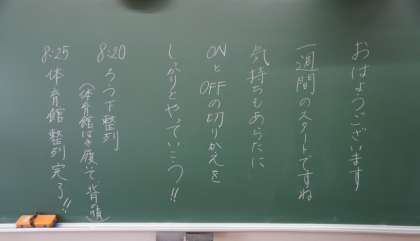 おはようございます
一週間のスタートですね
気持ちもあらたに
ONとOFFの切りかえを
しっかりとやっていこう!!
8:20 ろう下整列
(体育館ばき履いて、背順)
8:25 体育館 整列完了!!